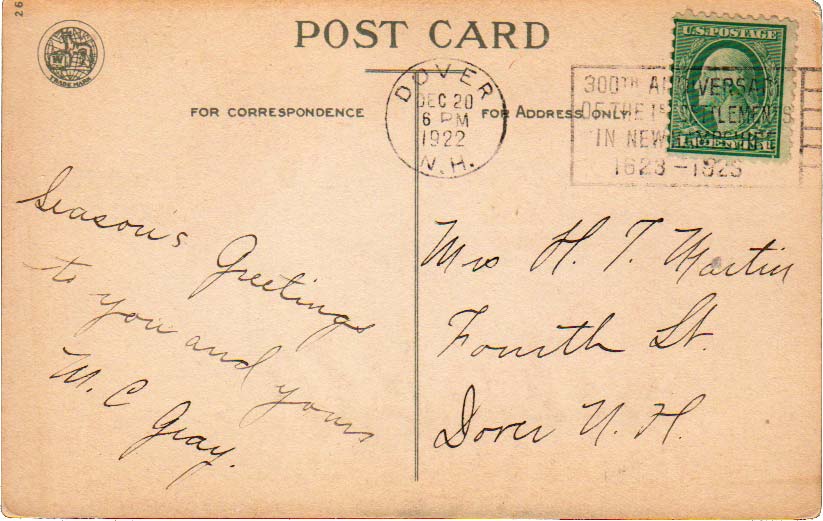 26
POST CARD
TRADE MARK
FOR CORRESPONDENCE
FOR ADDRESS ONLY
DOVER
DEC 20
6 PM
1922
N.H.
300TH ANNIVERSARY
OF THE 1ST SETTLEMENTS
IN NEW HAMPSHIRE
1623-1923
U.S. POSTAGE
Season's Greetings
to you and yours
M. C Gray.
Mrs H. T. Martin
Fourth St.
Dover N. H.